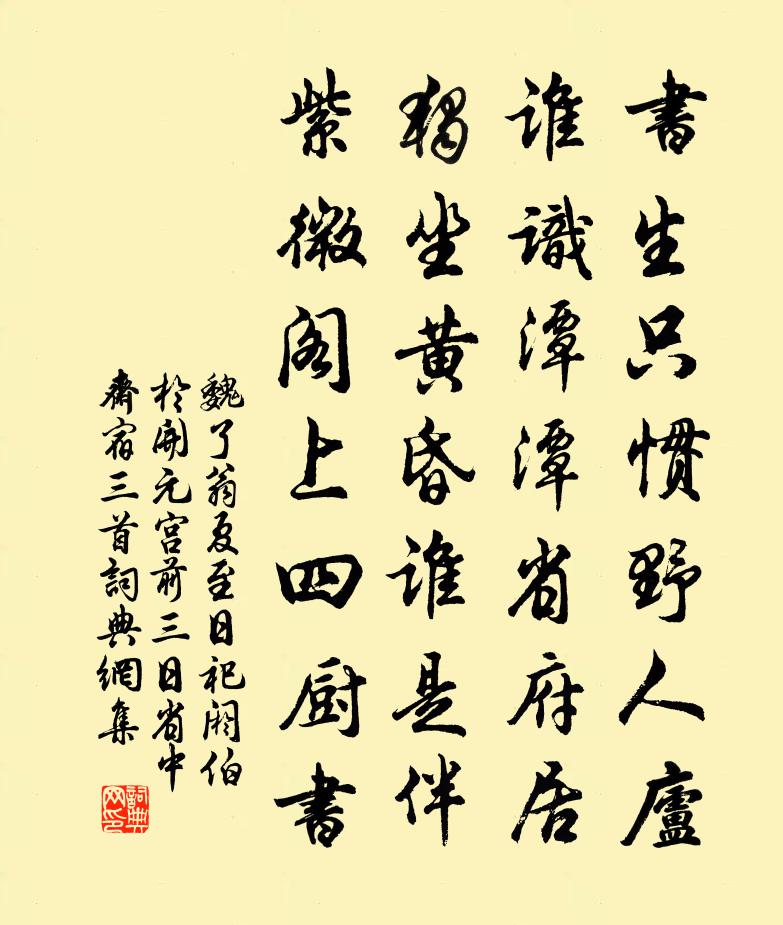 書生只慣野人廬
誰識潭潭省府居
獨坐黃昏誰是伴
紫微阁上四厨書
魏了翁夏至日祀阏伯
於開元宫前三日省中
齋宿三首詞典網集
詞典网印